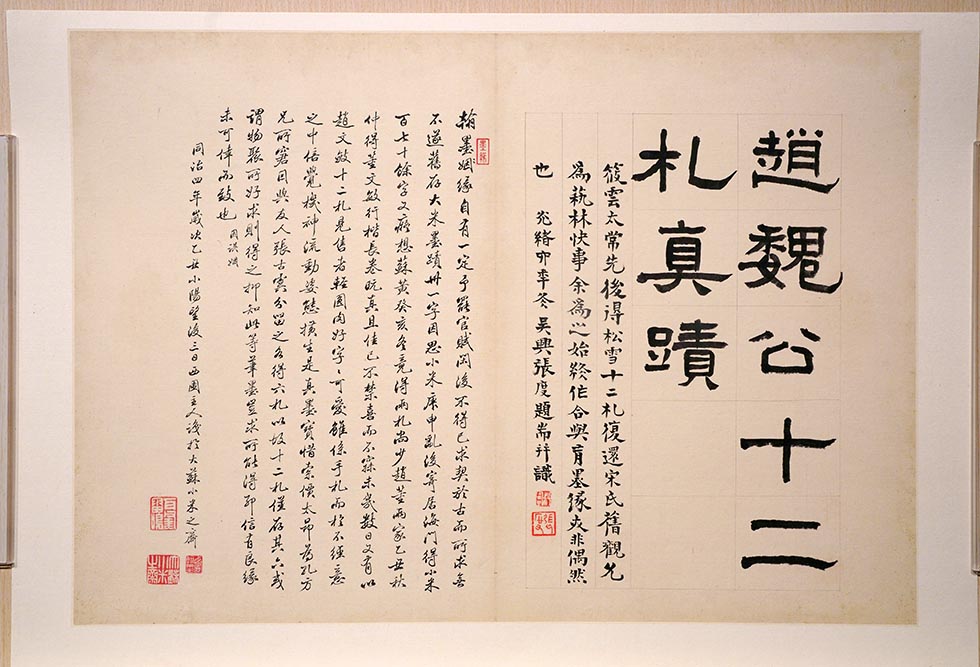 趙魏公十二
札真蹟
筱雲太常先後得松雪十二札復還宋氏舊觀允
為藝林快事余為之始終作合與有墨緣夫非偶然
也　光緒卯季冬吳興張度題耑并識
翰墨姻緣自有一定予罷官賦閑後不得已求契於古而所求無
不遂舊存大米墨蹟卅一字因思小米庚申亂後居海門得小米
百七十餘字又癡想蘇黃癸亥冬竟得兩札尚少趙董兩家乙丑秋
仲得董文敏行楷長卷既真且佳已不禁喜而不寐未幾數日又有以
趙文敏十二札見售者輕圓肉好字〻可愛雖係手札而於不經意
之中倍覺機神流動姿態橫生是真墨寶惜索價太昂為孔方
兄所窘因與友人張古雲分留之各得六札以故十二札僅存其六或
謂物聚所好求則得之抑知此等筆墨豈求所能得耶信有良緣
未可倖而致也
同治四年歲次乙丑小陽望後三日西園主人識於大蘇小米之齋